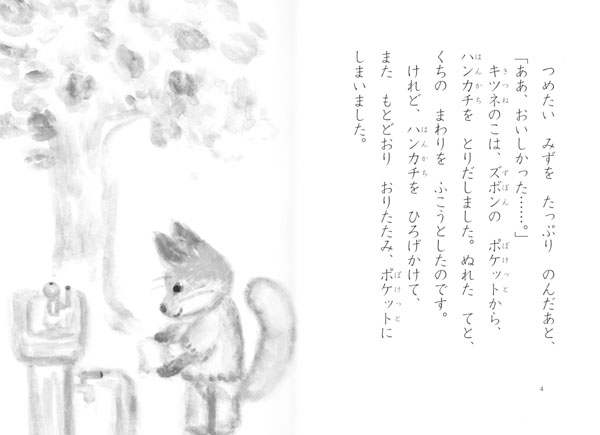 つめたい　みずを　たっぷり　のんだあと、
「ああ、おいしかった……。」
キツネのこは、ズボンの　ポケットから、
ハンカチを　とりだしました。ぬれた　てと、
くちの　まわりを　ふこうとしたのです。
けれど、ハンカチを　ひろげかけて、
また　もとどおり　おりたたみ、ポケットに
しまいました。
4